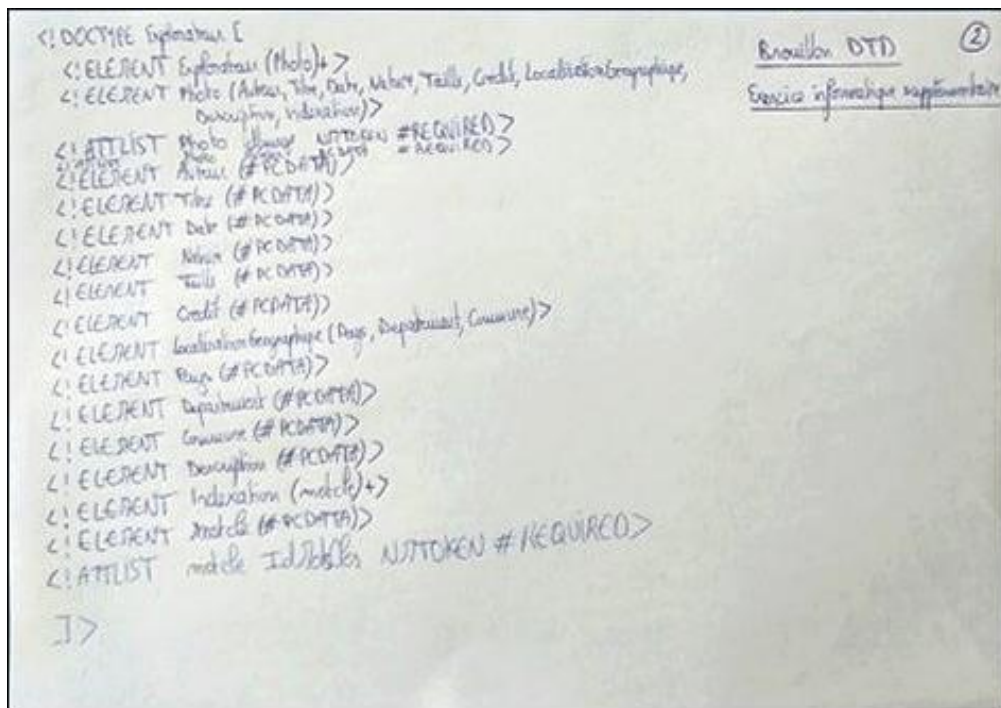 <!DOCTYPE Explorateur [
<!ELEMENT Explorateur (Photo)+>
<!ELEMENT Photo (Auteur, Titre, Date, Nature, Taille, Credit, LocalisationGeographique,
Description, Indexation)>
<!ATTLIST Photo NMTOKEN #REQUIRED>
Photo #REQUIRED>
<!ELEMENT Auteur (#PCDATA)>
<!ELEMENT Titre (#PCDATA)>
<!ELEMENT Date (#PCDATA)>
<!ELEMENT Nature (#PCDATA)>
<!ELEMENT Taille (#PCDATA)>
<!ELEMENT Credit (#PCDATA)>
<!ELEMENT LocalisationGeographique (Pays, Departement, Commune)>
<!ELEMENT Pays (#PCDATA)>
<!ELEMENT Departement (#PCDATA)>
<!ELEMENT Commune (#PCDATA)>
<!ELEMENT Description (#PCDATA)>
<!ELEMENT Indexation (motcle)+>
<!ELEMENT motcle (#PCDATA)>
<!ATTLIST motcle NMTOKEN #REQUIRED>
]>
Brouillon DTD
2
Exercice informatique supplémentaire